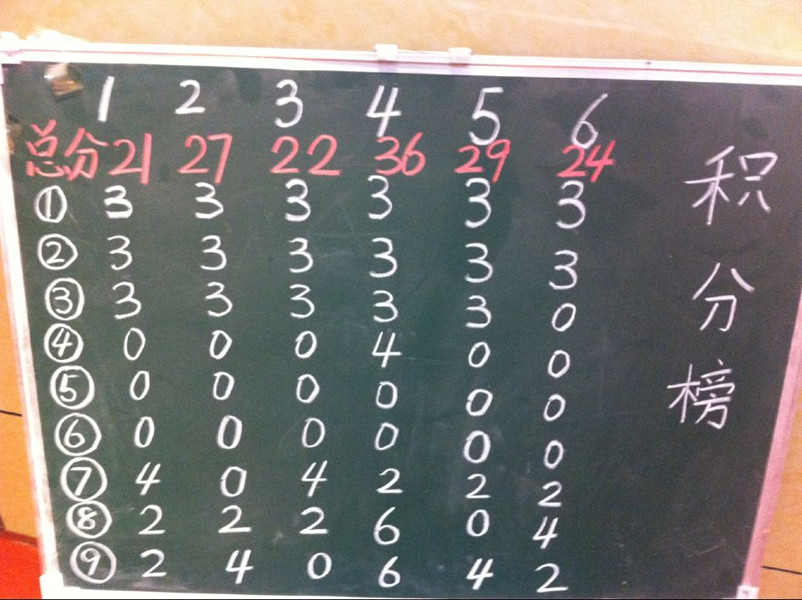 1 2 3 4 5 6
总分 21 27 22 36 29 24
① 3 3 3 3 3 3
② 3 3 3 3 3 3
③ 3 3 3 3 3 0
④ 0 0 0 4 0 0
⑤ 0 0 0 0 0 0
⑥ 0 0 0 0 0 0
⑦ 4 0 4 2 2 2
⑧ 2 2 2 6 0 4
⑨ 2 4 0 6 4 2
积分榜